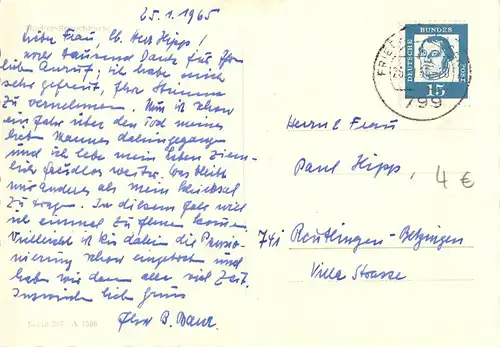 25. 1. 1965
Liebe Frau, lb. Herr Hipp!
noch tausend Dank für Ihren
lieben Anruf, ich habe mich
sehr gefreut, Ihre Stimme
zu vernehmen. Nun ist schon
ein Jahr über den Tod meines
lieben Mannes dahingegangen
und ich lebe mein Leben ziem-
lich freudlos weiter. Was bleibt
mir anderes als mein Schicksal
zu tragen. In diesem Jahr will
ich einmal zu Ihnen kommen.
Vielleicht ist bis dahin die Pensio-
nierung schon eingetreten und
haben wir dann alle viel Zeit.
Inzwischen liebe Grüsse
Ihre B.
DEUTSCHE BUNDES POST
15
799
Herrn u Frau
Paul Hipp,
4 €
741 Reutlingen-Betzingen
Villa Strasse